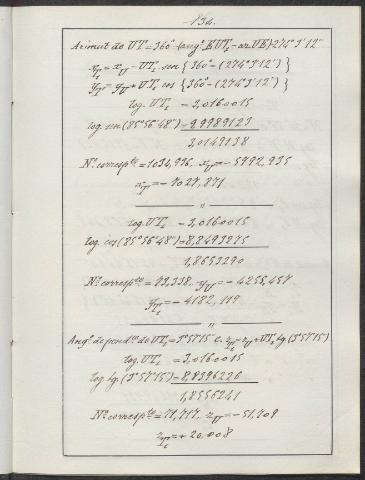 134.
Azimut do UT = 360° - (ang° EUT₁ - az UE) 274° 3' 12"
x_T₁ = x_U - UT₁ sen {360° - (274° 3' 12")}
y_T₁ = y_U + UT₁ cos {360° - (274° 3' 12")}
log. UT₁ = 3,0160015
log. sen (85° 56' 48") = 9,9989123
3,0149138
N.° corresp.te = 1034,936, x_U = -5992,935
x_T₁ = -7027,871
"
log. UT₁ = 3,0160015
log. cos (85° 56' 48") = 8,8493275
1,8653290
N.° corresp.te = 73,338, y_U = -4255,457
y_T₁ = -4182,119
"
Ang.° de pend.te do UT₁ = 3° 57' 15" e z_T₁ = z_U + UT₁ tg (3° 57' 15")
log. UT₁ = 3,0160015
log. tg. (3° 57' 15") = 8,8396226
1,8556241
N.° corresp.te = 71,717, z_U = -51,709
z_T₁ = + 20,008